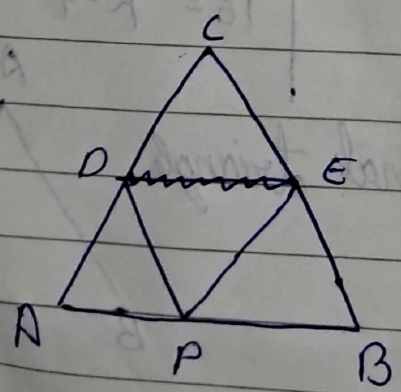 C
D E
A P B